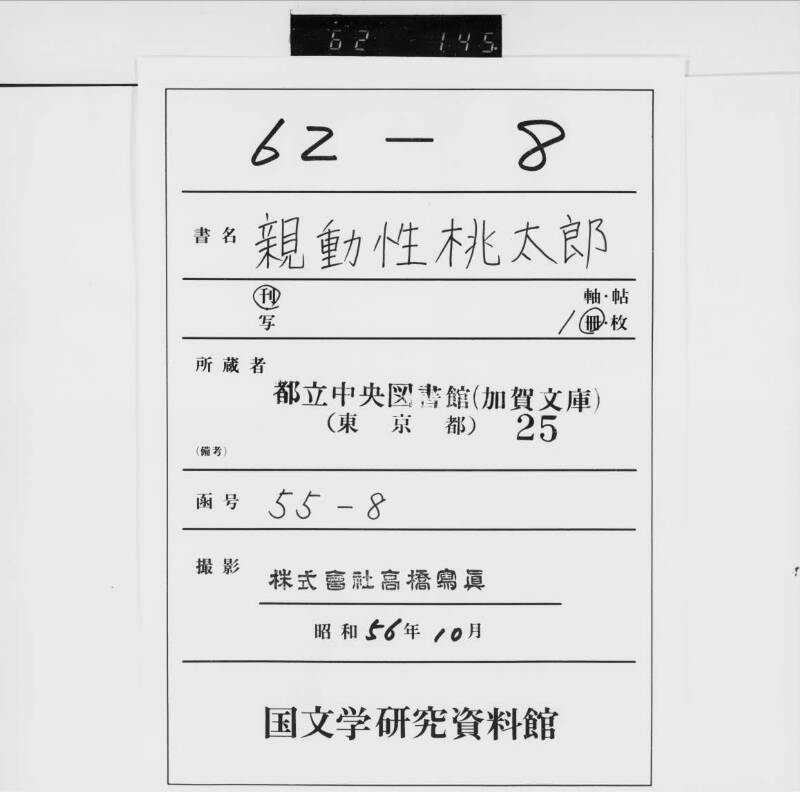 62 145
62 - 8
書名 親動性桃太郎
刊 軸・帖
写 1冊・枚
所蔵者
都立中央図書館(加賀文庫)
(東京都) 25
(備考)
函号 55-8
撮影 株式會社高橋寫真
昭和56年10月
国文学研究資料館